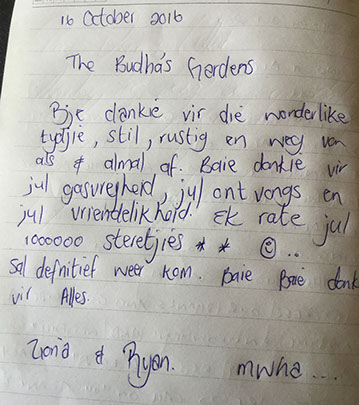 16 October 2016
The Budha's Gardens
Bje dankie vir die wonderlike
tydjie, stil, rustig en weg van
als & almal af. Baie dankie vir
jul gasvrejheid, jul ontvangs en
jul vriendelikheid. Ek rate jul
1000000 steretjies * * ☺..
Sal defnitief weer kom. Baie Baie dank
vir Alles.
& Ryan. mwha ...